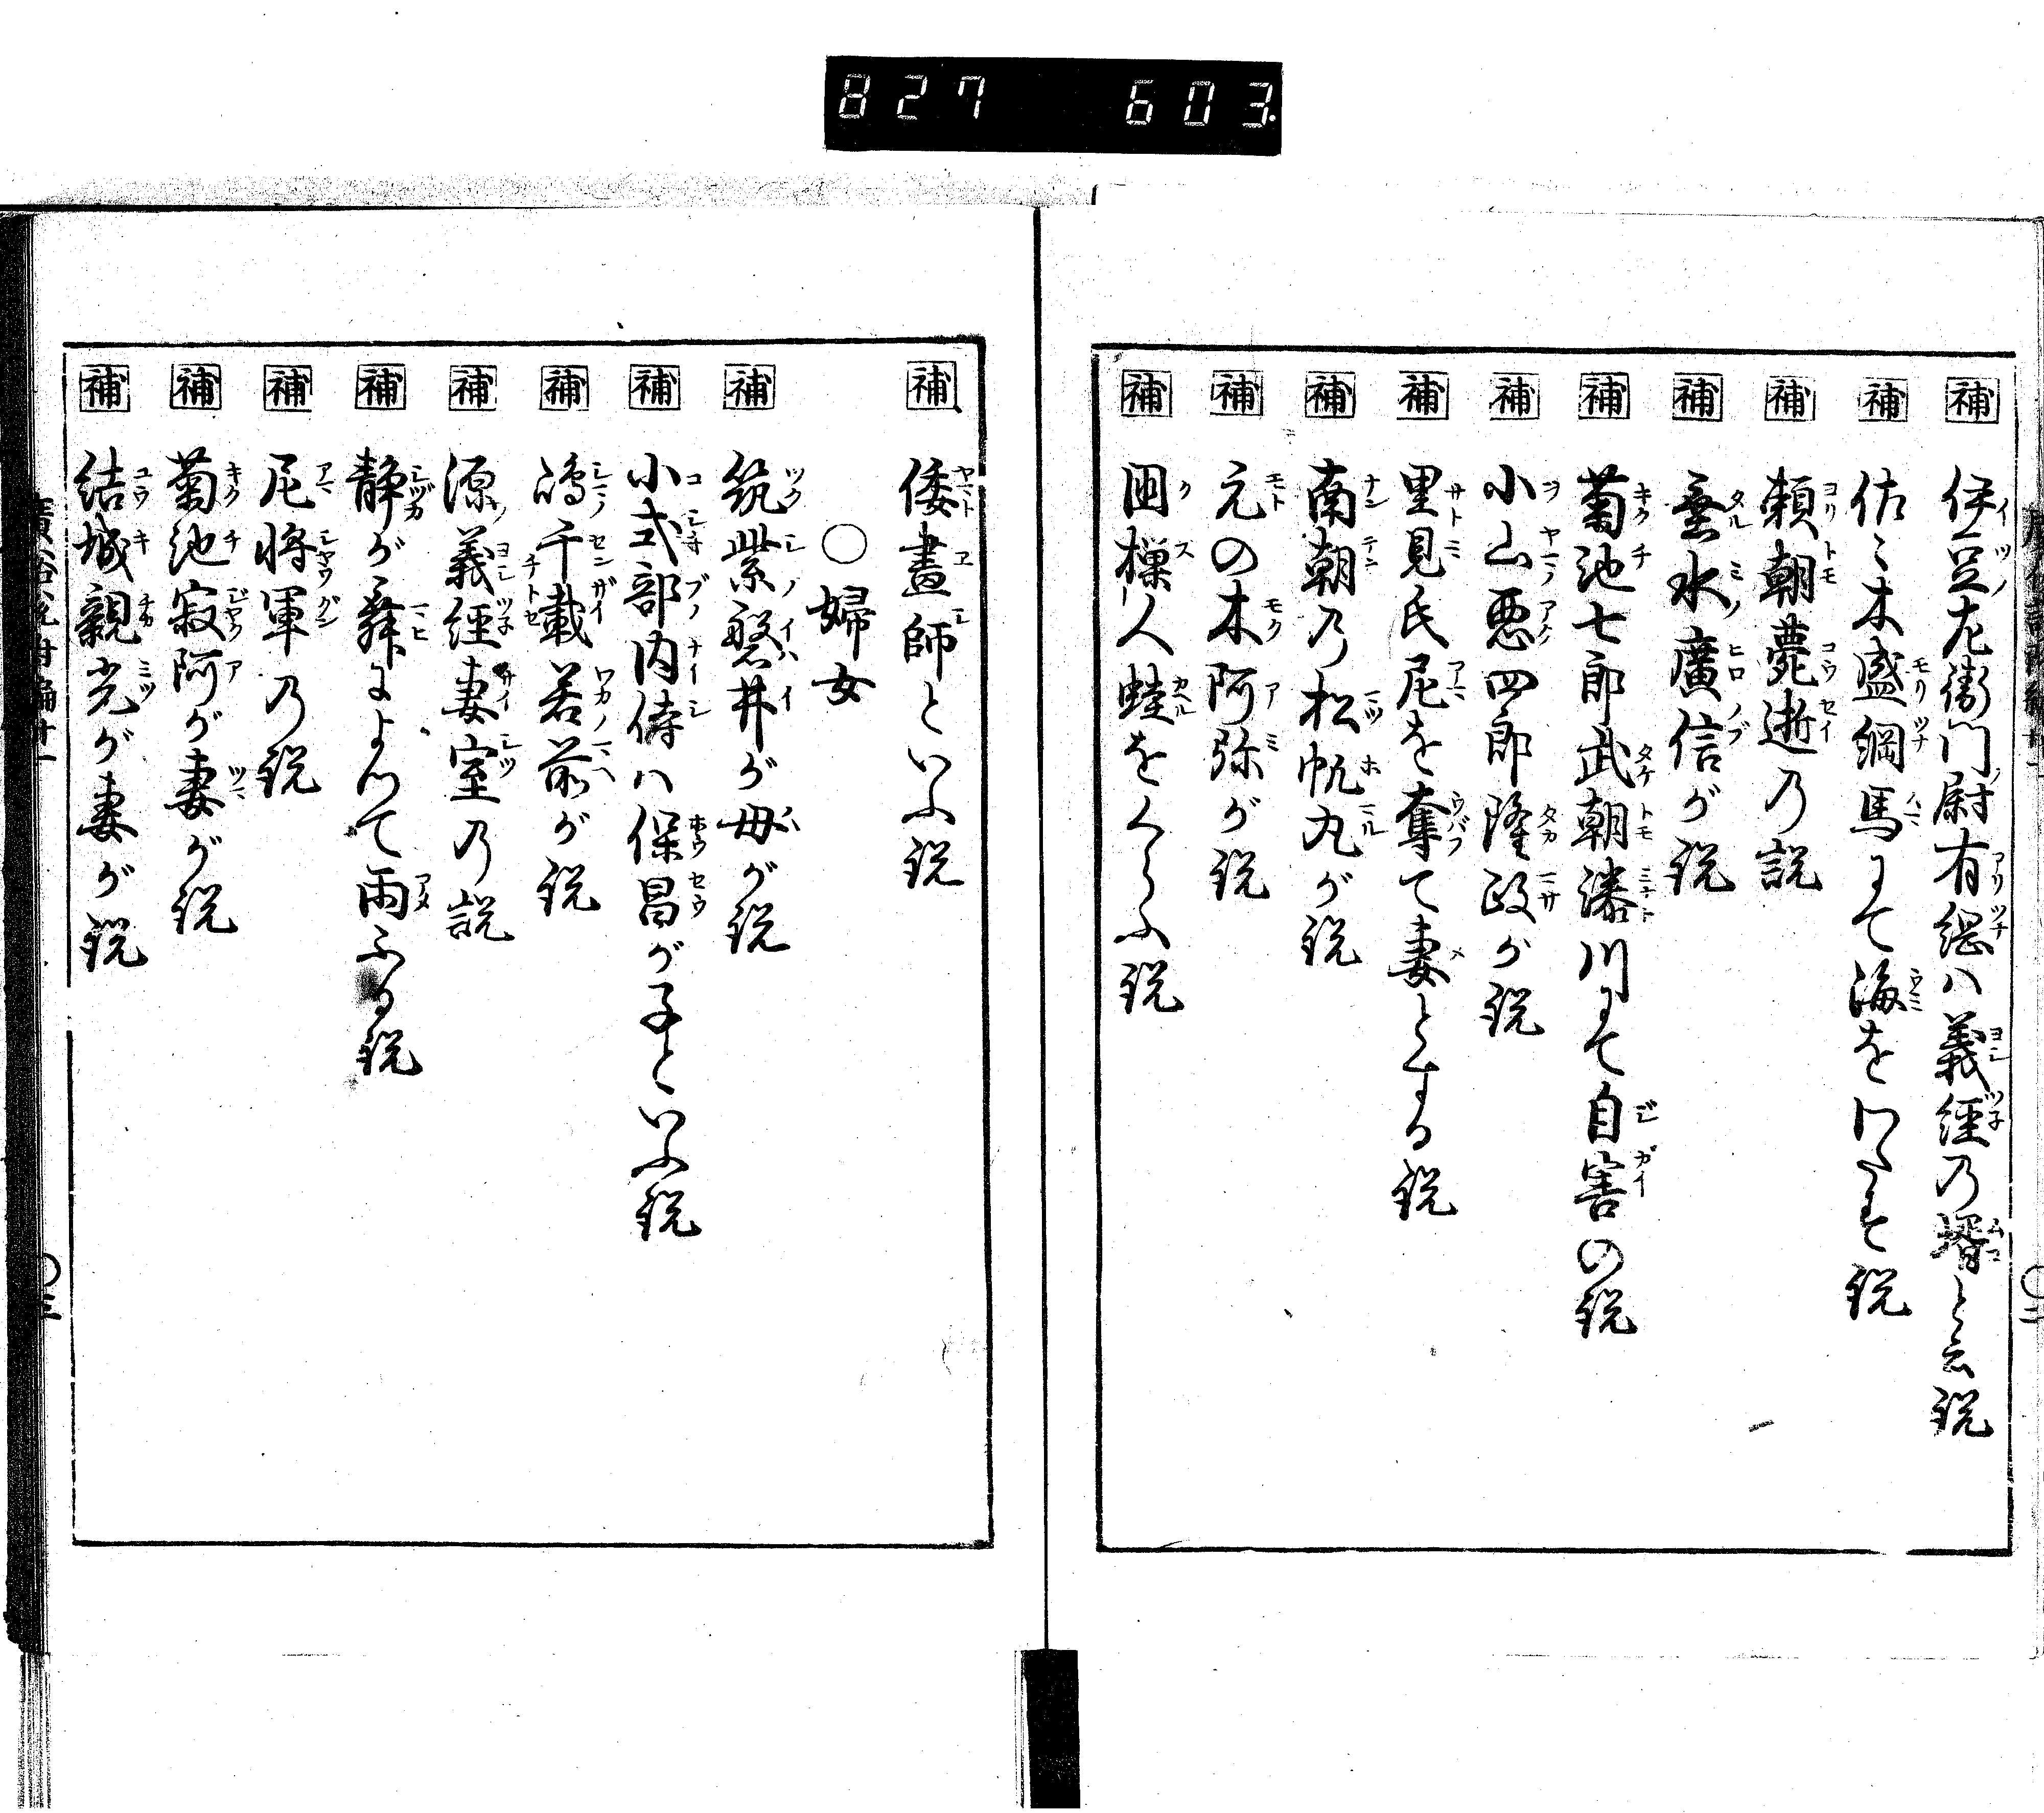 827 603.
補 伊豆左衛門尉有綱ハ義経乃壻と云説
補 佐々木盛綱馬にて海をわたす説
補 頼朝薨逝乃説
補 垂水廣信が説
補 菊池七郎武朝湊川にて自害の説
補 小山悪四郎隆政が説
補 里見氏尼を奪て妻とする説
補 南朝乃松帆丸が説
補 元の木阿弥が説
補 国樔人蛙をくらふ説
補 倭畫師といふ説
○婦女
補 筑紫磐井が母が説
補 小式部内侍ハ保昌が子といふ説
補 嶋千載若前が説
補 源義経妻室乃説
補 静が舞によつて雨ふる説
補 尼将軍乃説
補 菊池寂阿が妻が説
補 結城親光が妻が説
○三